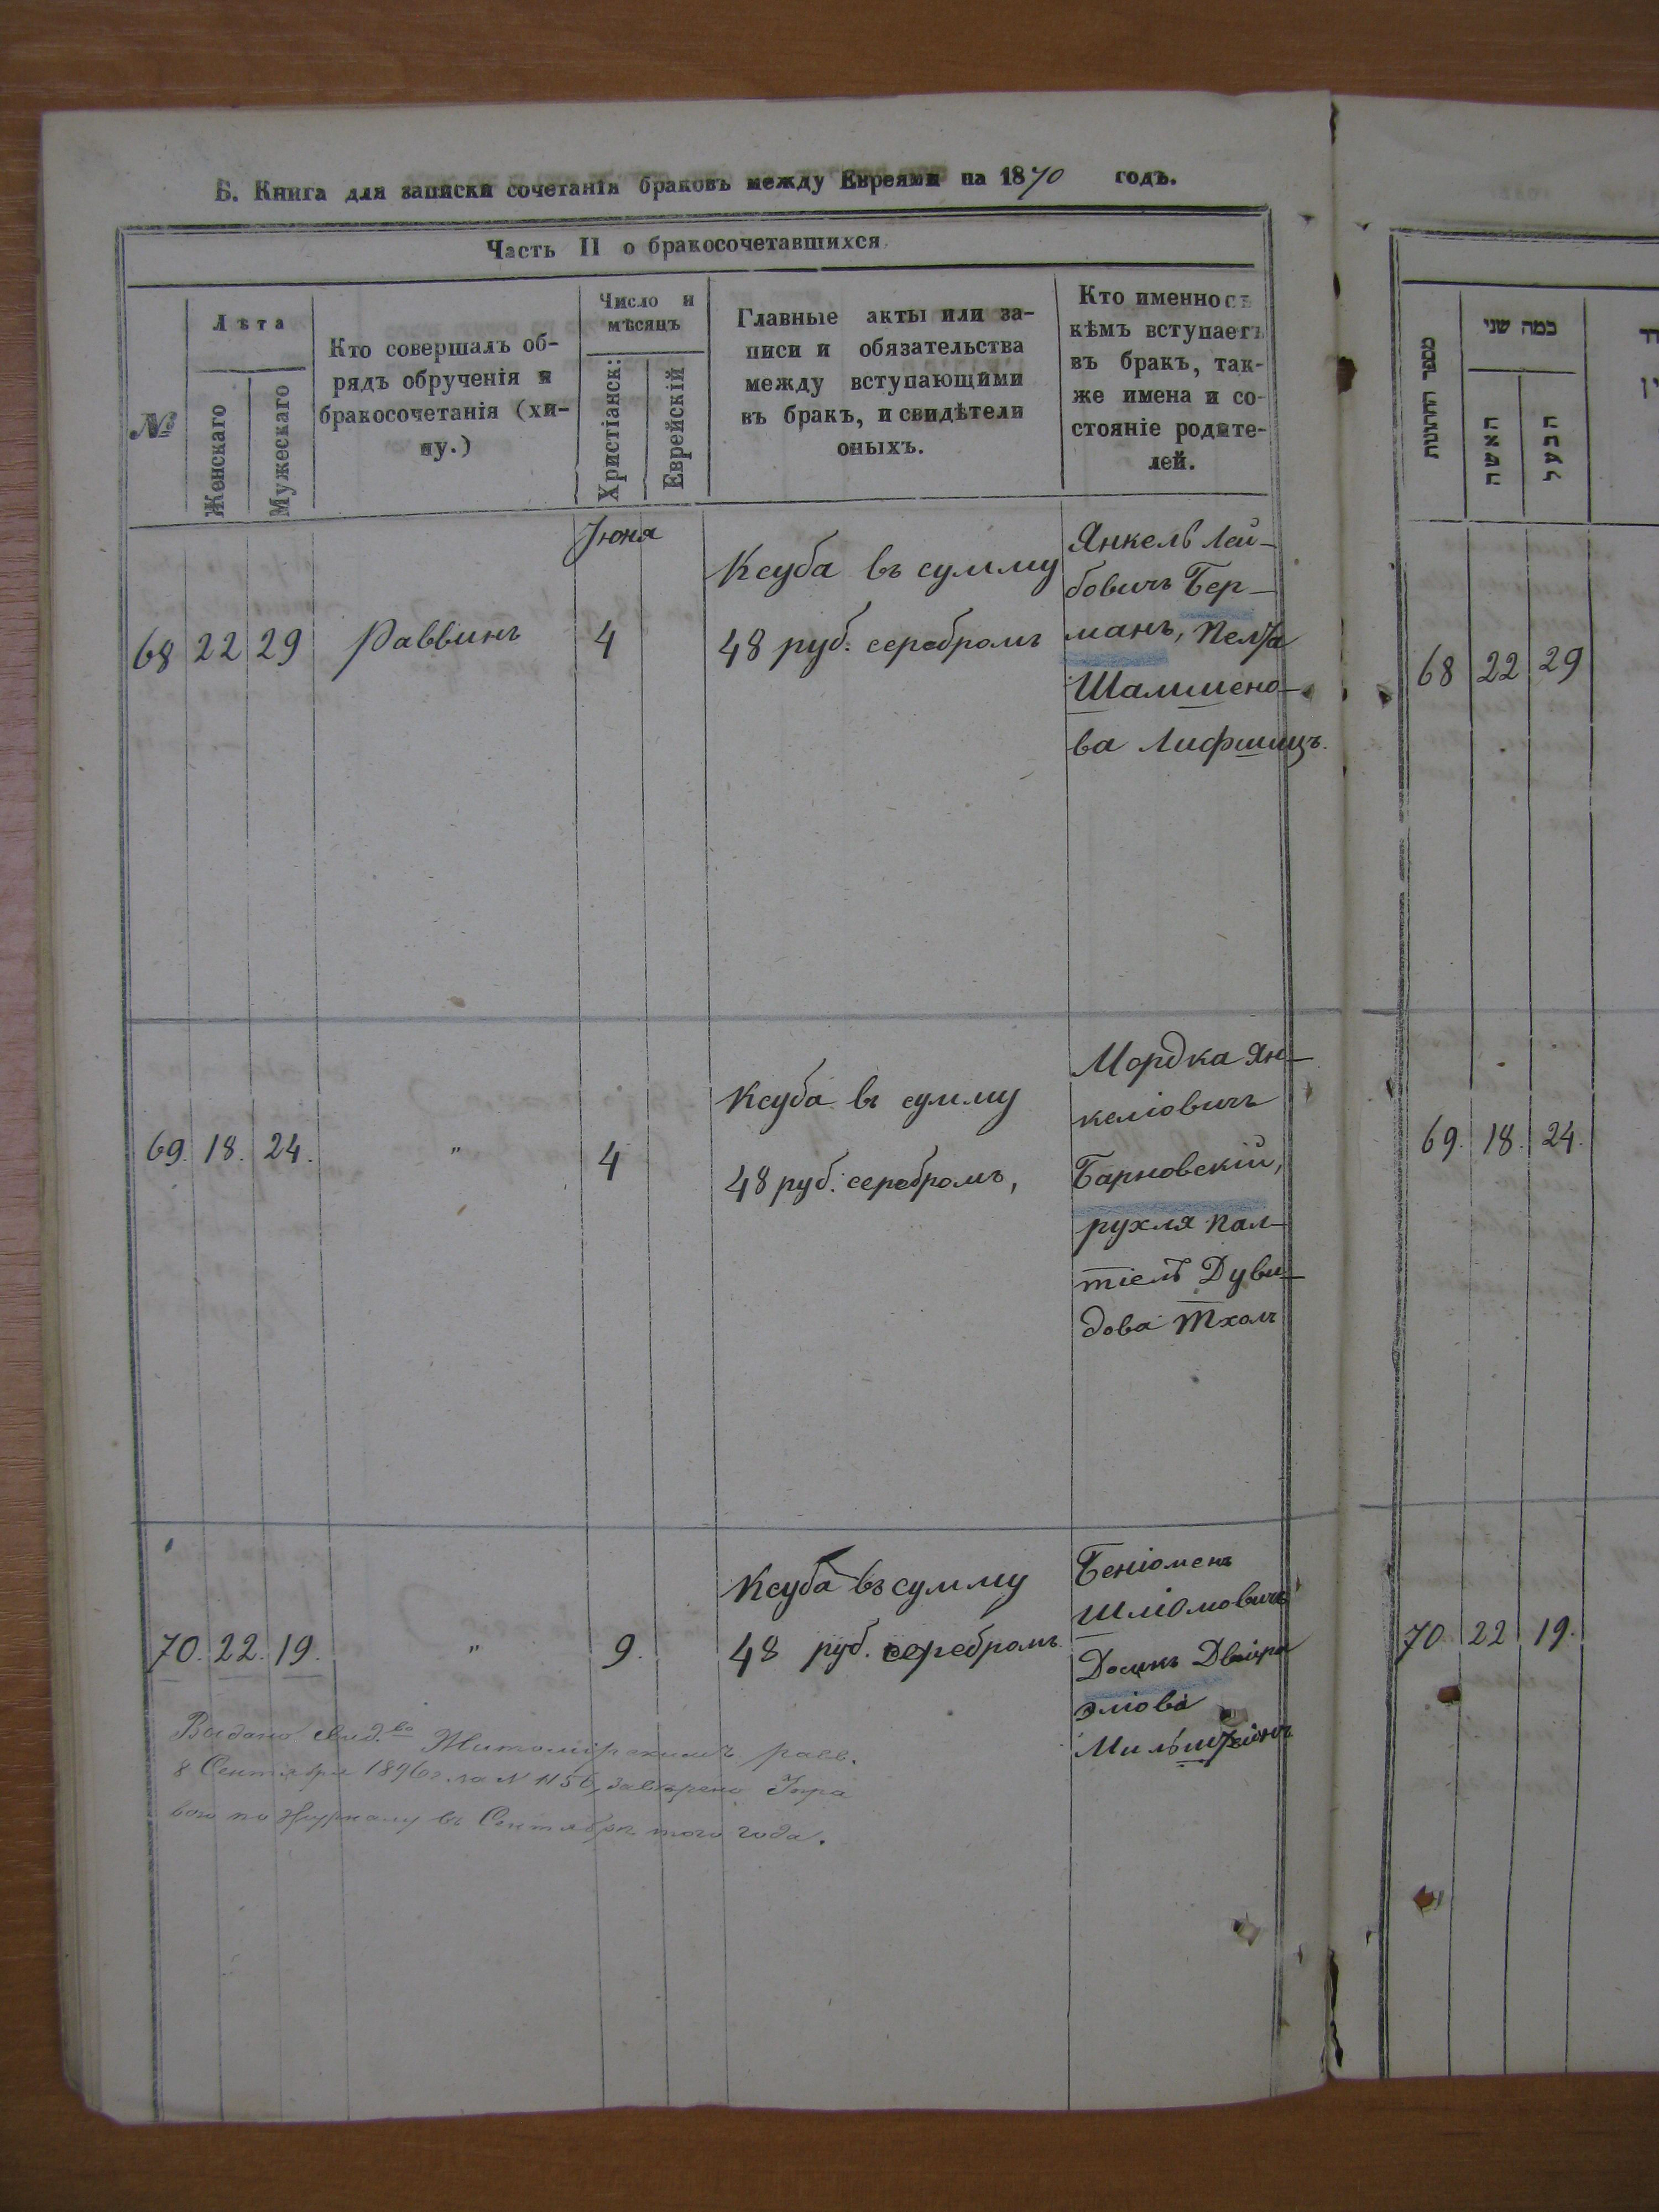 Б. Книга для записки сочетанія браковъ между Евреями на 1870 годъ.
Часть II о бракосочетавшихся
№
Лѣта
Женскаго
Мужескаго
Кто совершалъ об-
рядъ обрученія и
бракосочетанія (хи-
пу.)
Число и
мѣсяцъ
Христіанск:
Еврейскій
Главные акты или за-
писи и обязательства
между вступающими
въ бракъ, и свидѣтели
оныхъ.
Кто именно съ
кѣмъ вступаетъ
въ бракъ, так-
же имена и со-
стояніе родите-
лей.
Іюня
68 22 29 Раввинъ 4
Ксуба въ сумму
48 руб. серебромъ
Янкель Лей-
бовичъ Бер-
манъ,
Шамшено-
ва Лифшицъ.
69. 18. 24. " 4
Ксуба въ сумму
48 руб. серебромъ,
Мордка Ян-
келіовичъ
Барновскій,
рухля Пал-
тіелъ Дуви-
дова
70. 22. 19. " 9.
Ксуба въ сумму
48 руб. серебромъ
Беніоменъ
Шліомовичъ
Двейра
Эліова
Выдано свид.во Житомірскимъ равв.
8 Сентября 1896 г. за № 1156, заверено
по журналу въ Сентябрѣ того года.
מספר החתונות
כמה שני
האשה
הבעל
68 22 29
69. 18. 24.
70. 22 19.